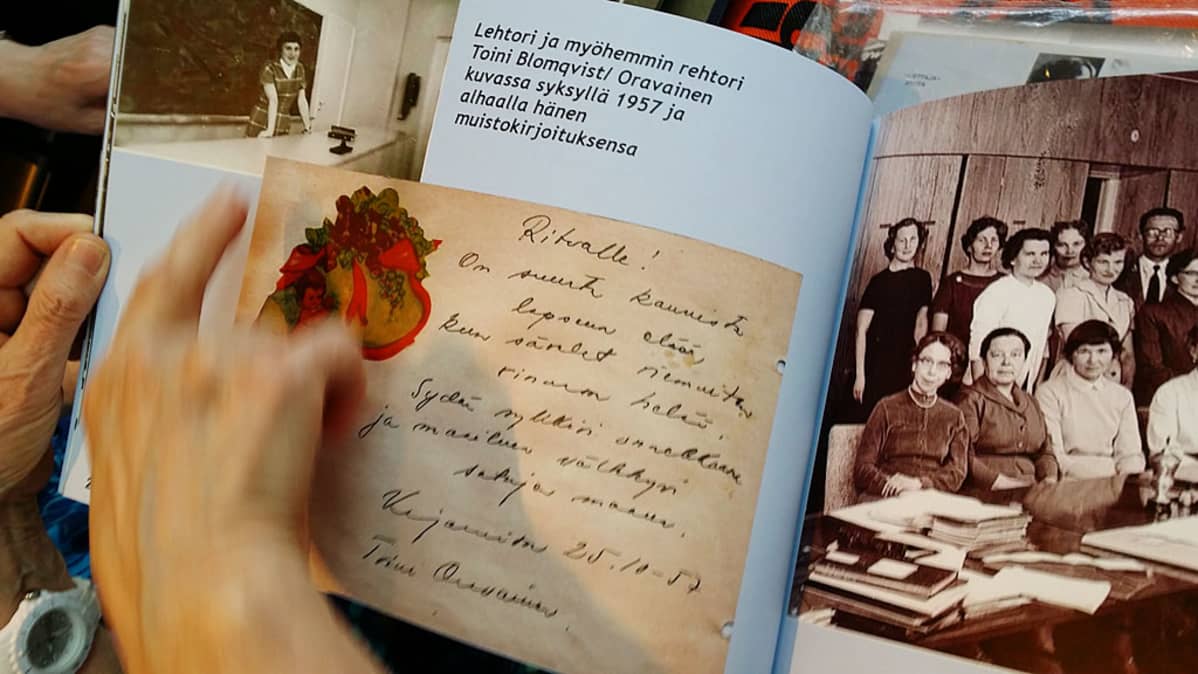 Lehtori ja myöhemmin rehtori
Toini Blomqvist/ Oravainen
kuvassa syksyllä 1957 ja
alhaalla hänen
muistokirjoituksensa
Ritvalle!
On suurta kaunista
lapsena elää,
kun sävelet riemuiten
rinnassa helää.
Sydän sykkivi onnekkaana
ja maailma välkkyvi
satujen maana.
25.10-57
Toini Oravainen.